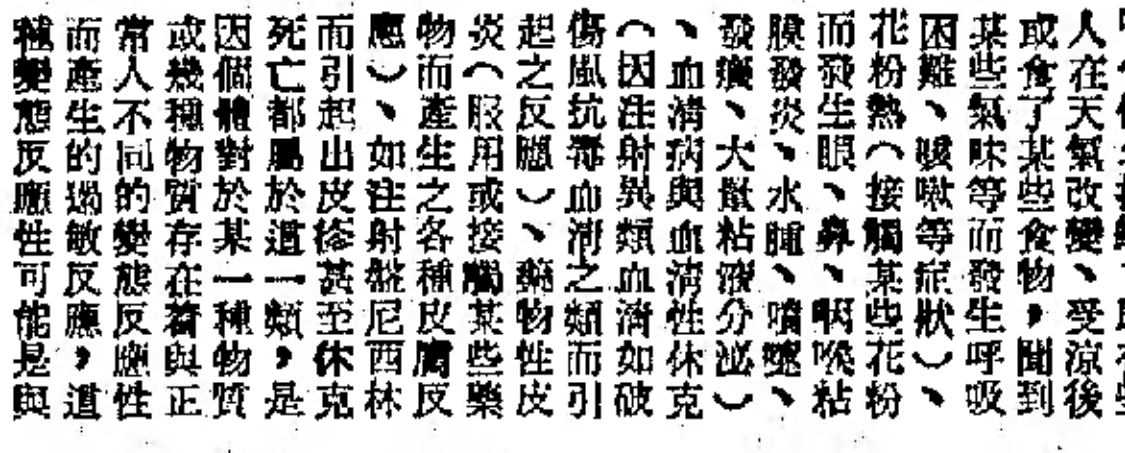 人在天氣改變、受涼後
或食了某些食物，聞到
某些氣味等而發生呼吸
困難、咳嗽等症狀）、
花粉熱（接觸某些花粉
而發生眼、鼻、咽喉粘
膜發炎、水腫、噴嚏、
發癢、大量粘液分泌）
、血清病與血清性休克
（因注射異類血清如破
傷風抗毒血清之類而引
起之反應）、藥物性皮
炎（服用或接觸某些藥
物而產生之各種皮膚反
應）、如注射盤尼西林
而引起出皮疹甚至休克
死亡都屬於這一類，是
因個體對於某一種物質
或幾種物質存在着與正
常人不同的變態反應性
而產生的過敏反應，這
種變態反應性可能是與